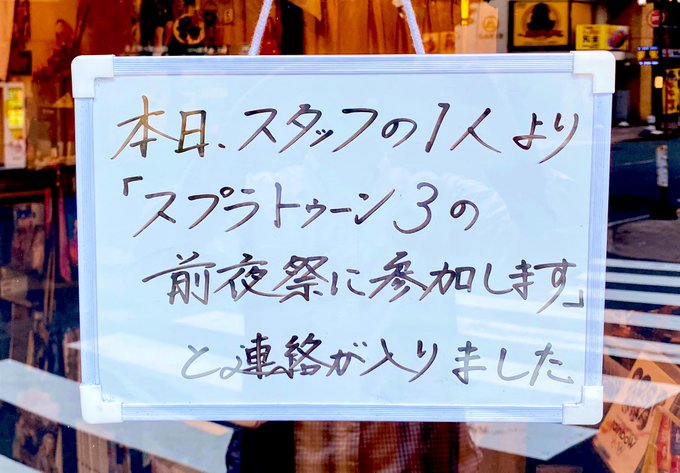 本日、スタッフの1人より
「スプラトゥーン3の
前夜祭に参加します」
と連絡が入りました